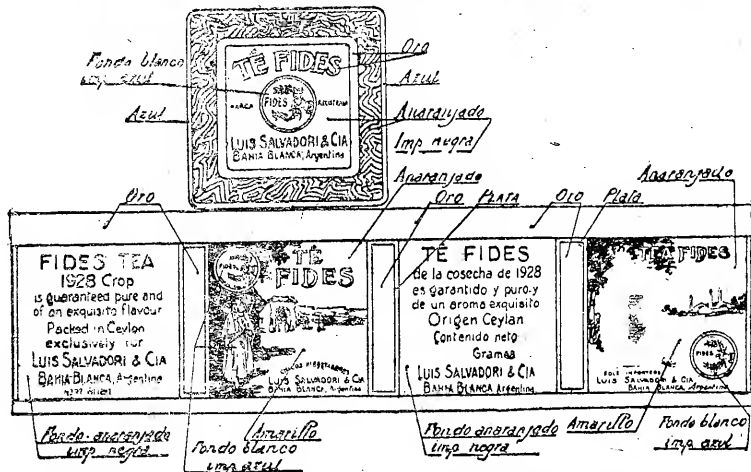 Oro
Fondo blanco
imp azul
Azul
Azul
Anaranjado
Imp negra
TÉ FIDES
FIDES
MARCA
REGISTRADA
LUIS SALVADORI & CIA
BAHIA BLANCA, Argentina
Oro
Anaranjado
Oro
PLATA
Oro
Plata
Anaranjado
FIDES TEA
1928 Crop
is guaranteed pure and
of an exquisito flavour
Packed in Ceylon
exclusively for
LUIS SALVADORI & CIA
BAHIA BLANCA, Argentina
FIDES
TÉ
FIDES
LUIS SALVADORI & CIA
BAHIA BLANCA, Argentina
TÉ FIDES
de la cosecha de 1928
es garantido y puro y
de un aroma exquisito
Origen Ceylan
Contenido neto
Gramos
LUIS SALVADORI & CIA
BAHIA BLANCA, Argentina
TEA FIDES
FIDES
SOLE IMPORTERS
LUIS SALVADORI & CIA
BAHIA BLANCA, Argentina
Fondo anaranjado
imp negra
Fondo blanco
imp azul
Amarillo
Fondo anaranjado
imp negra
Amarillo
Fondo blanco
imp azul